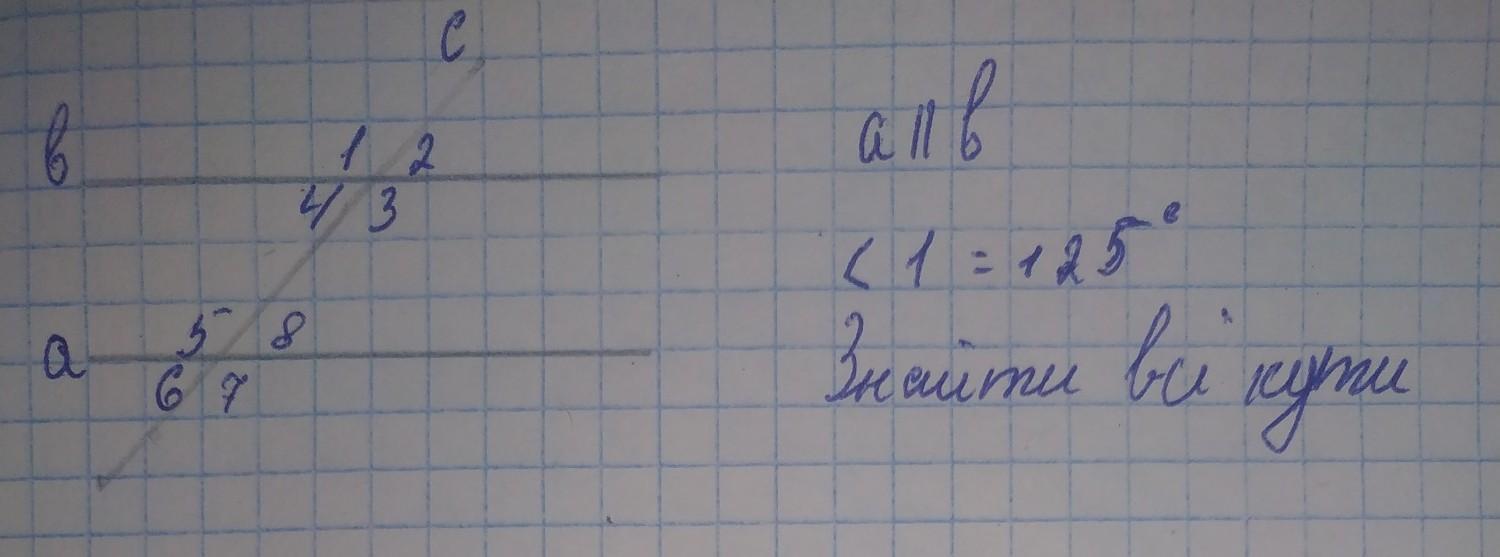 c
в 1 2
4 3
5 8
а
6 7
а || в
< 1 = 125°
Знайти всі кути